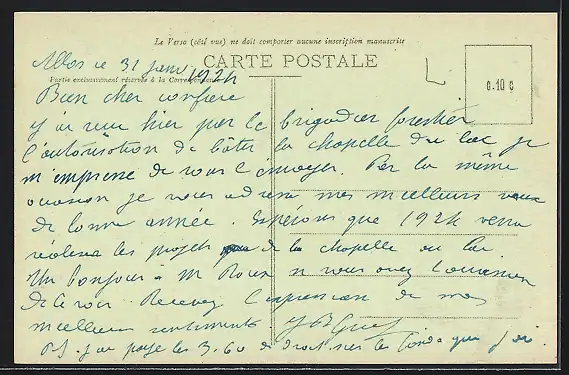 Le Verso (côté vue) ne doit comporter aucune inscription manuscrite
CARTE POSTALE
Partie exclusivement réservée à la Correspondance
0.10 c
Allos le 31 janv 1924
Bien cher confrère
J'ai reçu hier par le brigadier forestier
l'autorisation de bâtir la chapelle du lac je
m'empresse de vous l'envoyer. Par la même
occasion je vous adresse mes meilleurs vœux
de bonne année. Espérons que 1924 verra
les projets de la chapelle au lac
Un bonjour à M Roux si vous avez l'occasion
de le voir. Recevez l'expression de mes
meilleurs sentiments.
P.S. J'ai payé les 3.60 de droit sur les fonds que j'ai